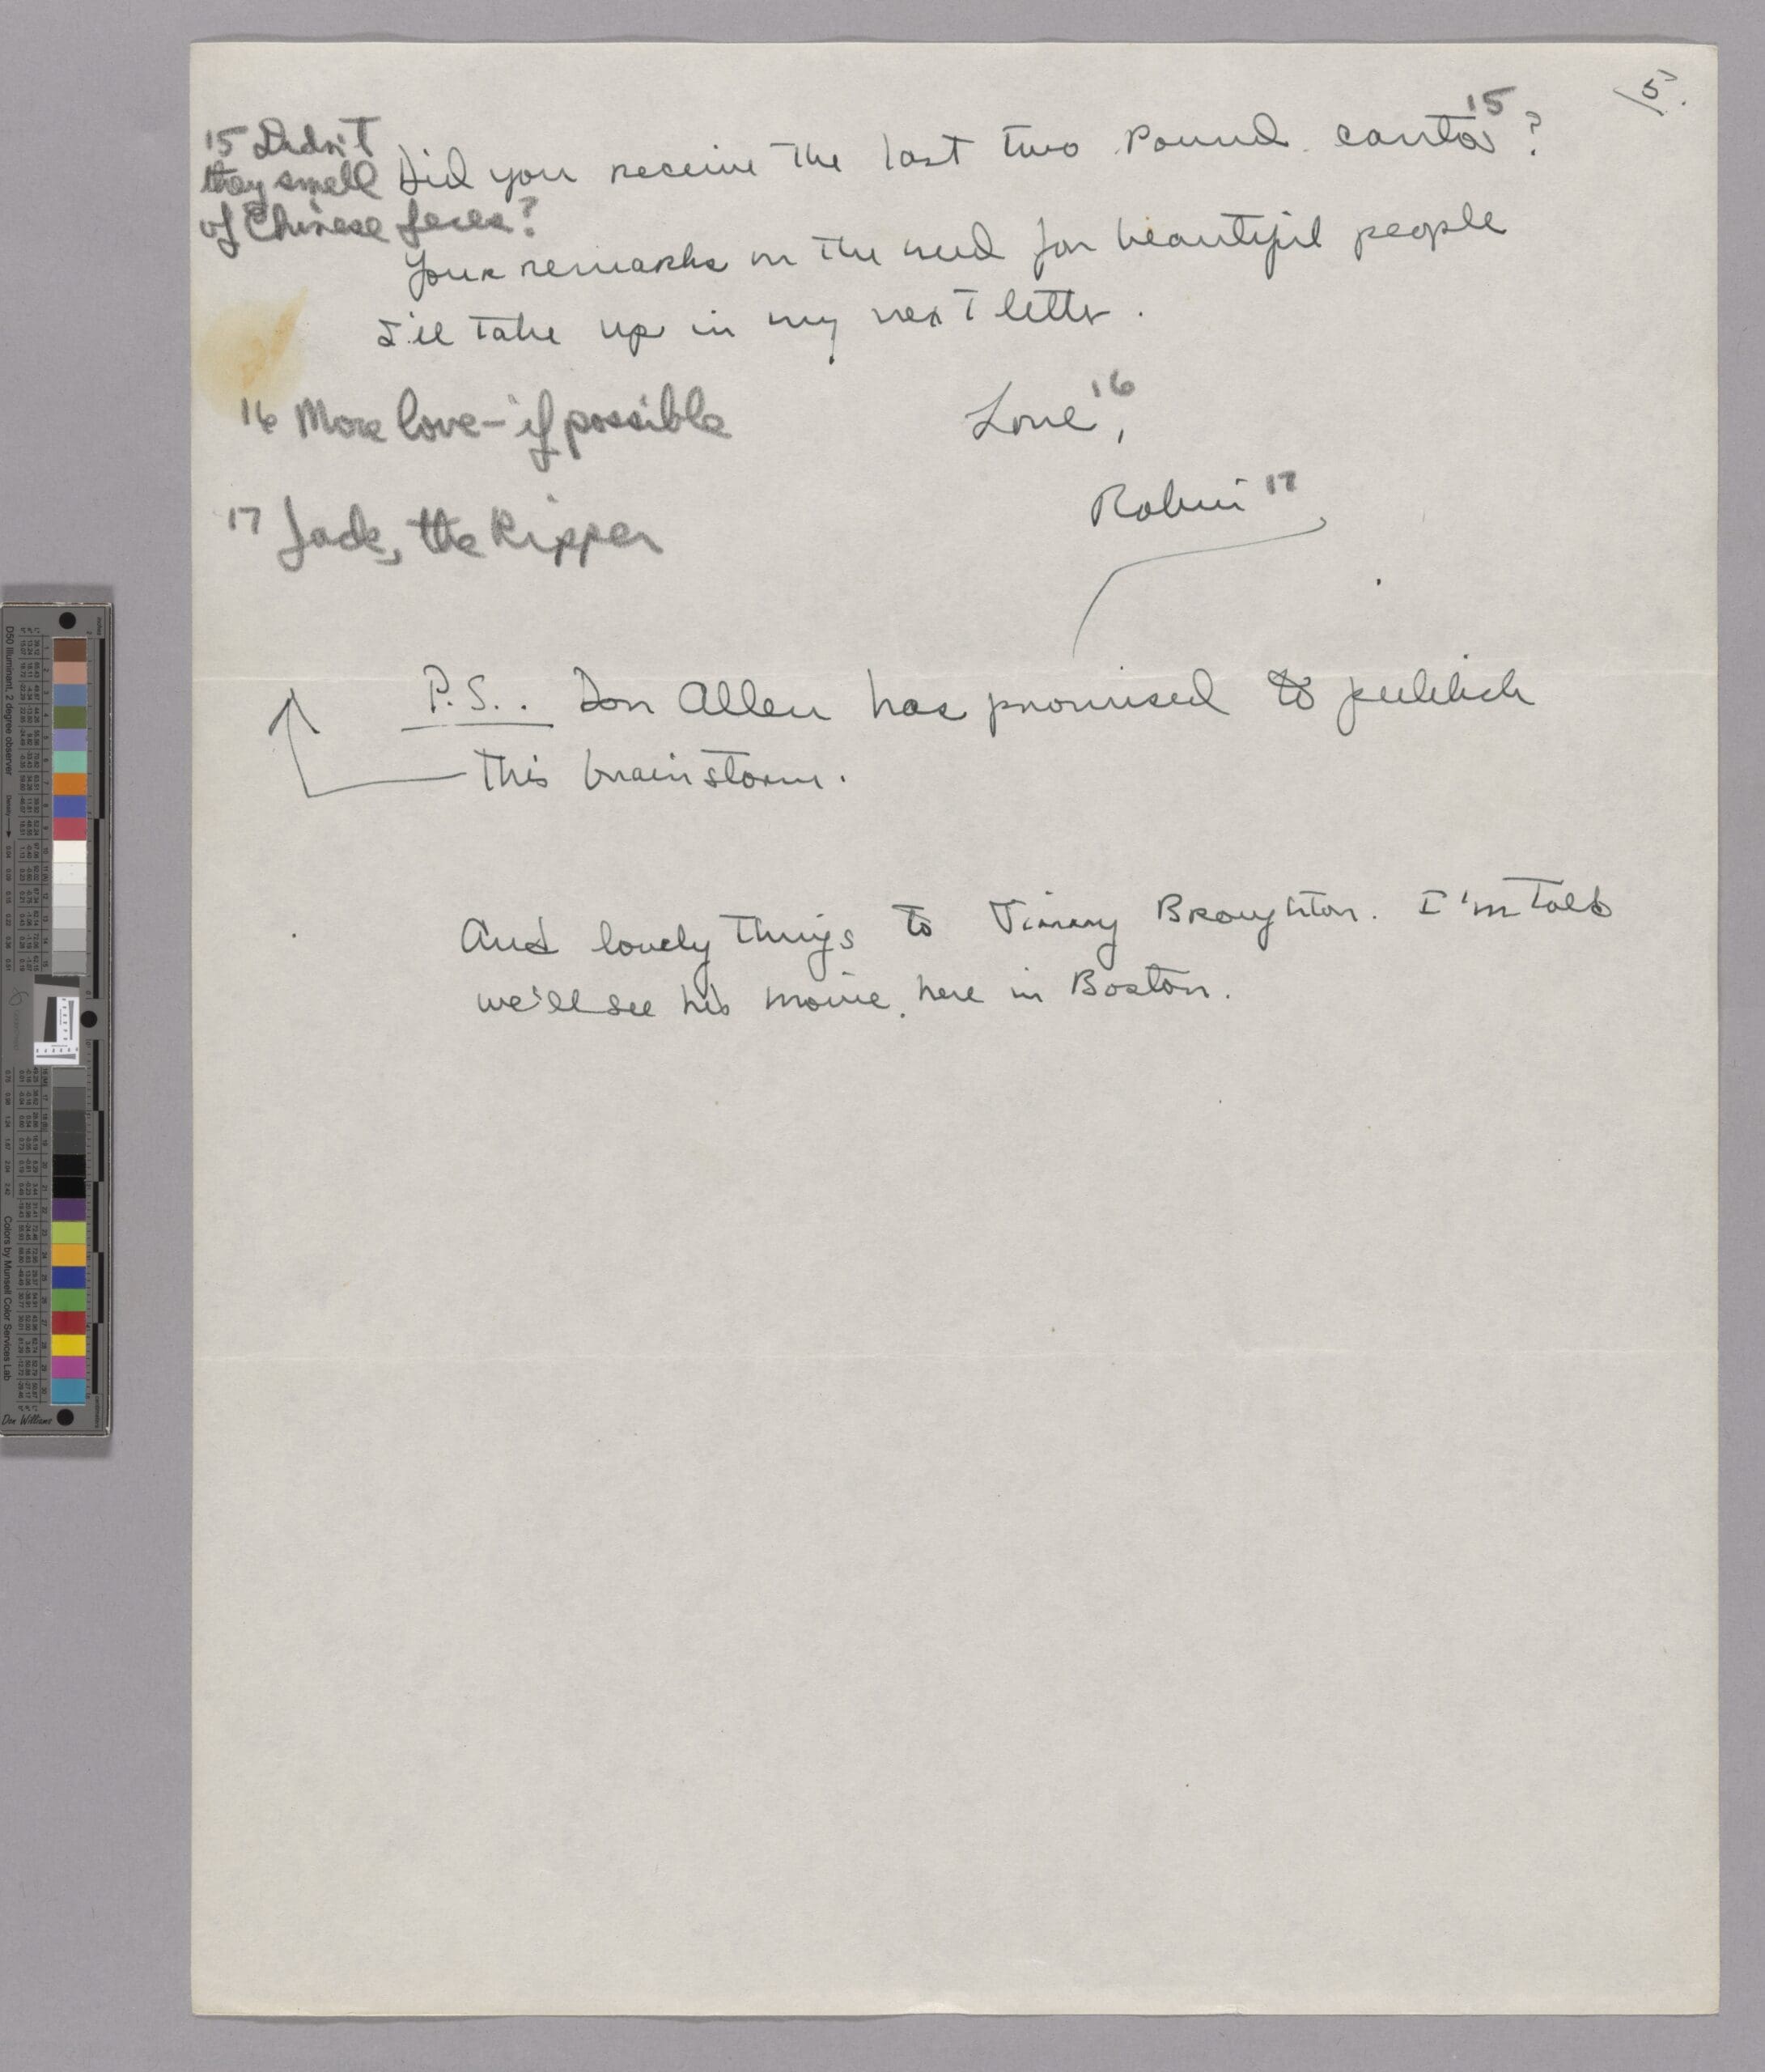 5)
Did you receive the last two Pound cantos 15 ?
15 Didn't
they smell
of Chinese feces?
Your remarks on the need for beautiful people
I'll take up in my next letter.
Love, 16
16 More love - if possible
Robin 17
17 Jack, the Ripper
P.S.. Don Allen has promised to publish
this brainstorm.
And lovely things to Jimmy Broughton. I'm told
we'll see his movie here in Boston.
D50 Illuminant, 2 degree observer
Density
Colors by Munsell Color Services Lab
Don Williams